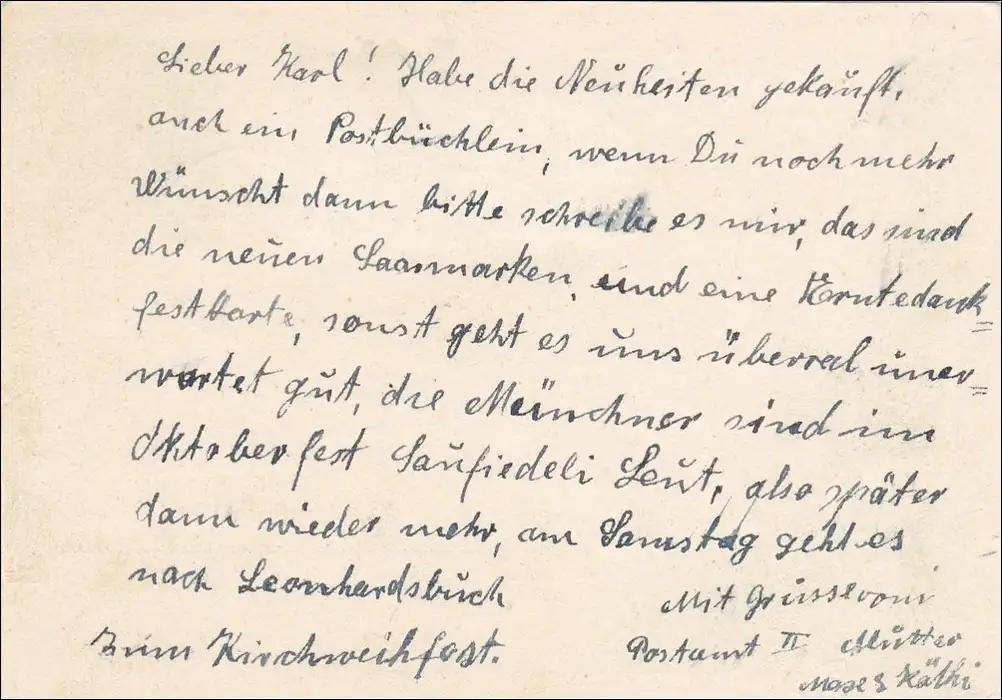 Lieber Karl! Habe die Neuheiten gekauft,
auch ein Postbüchlein, wenn Du noch mehr
Wünscht dann bitte schreibe es mir, das sind
die neuen Saarmarken, und eine Erntedank=
festkarte, sonst geht es uns überral uner=
wartet gut, die Münchner sind im
Oktoberfest Saufiedeli Leut, also später
dann wieder mehr, am Samstag geht es
nach Leonhardsbuch
zum Kirchweihfest.
Mit Grüsse vom
Postamt II Mutter
Käthi